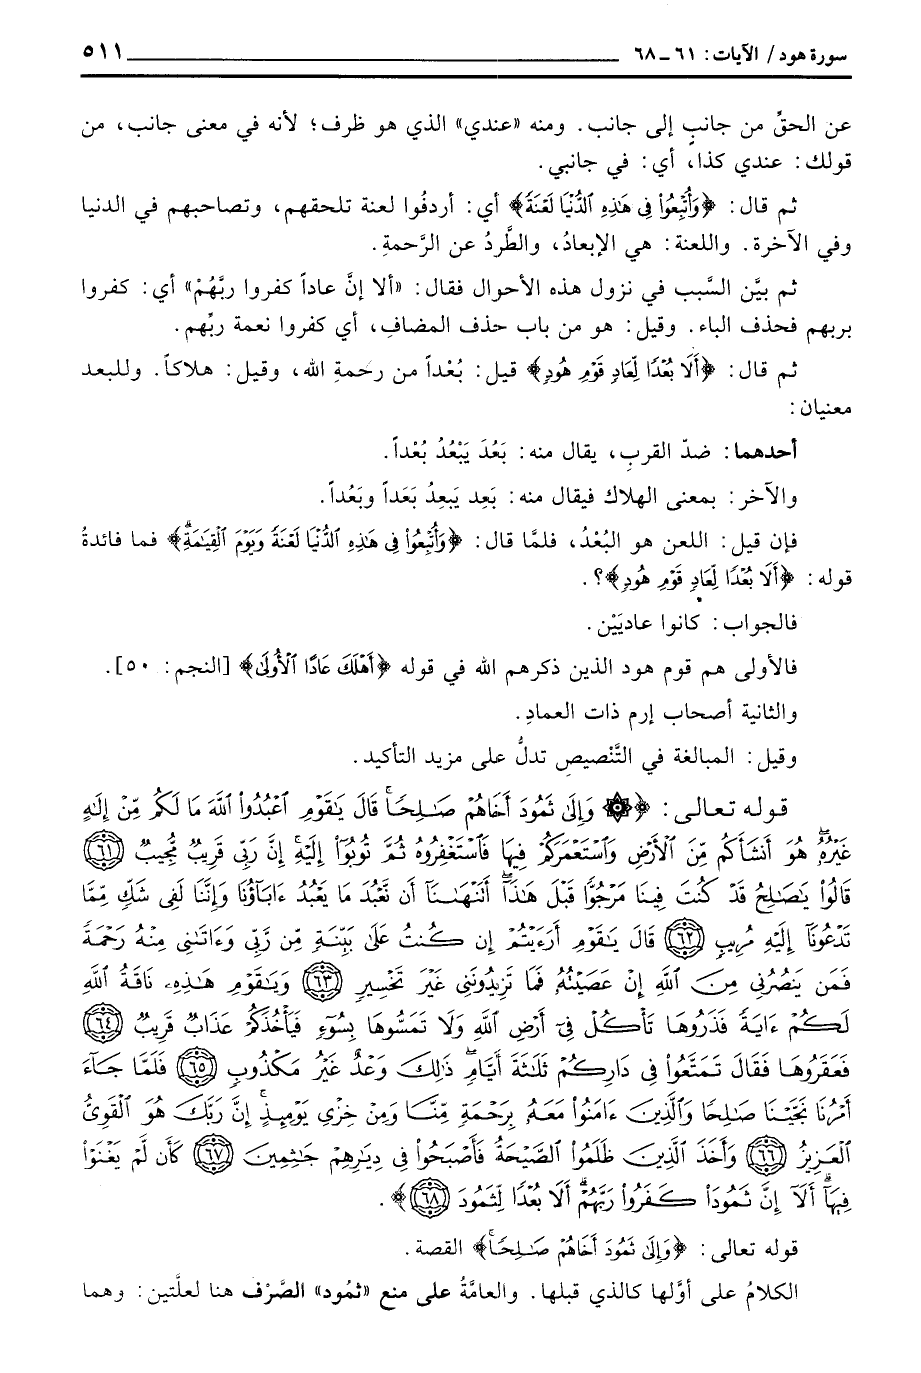 سورة هود/ الآيات: ٦١ - ٦٨ ٥١١
عن الحقِّ من جانبٍ إلى جانب. ومنه «عندي» الذي هو ظرف؛ لأنه في معنى جانب، من
قولك: عندي كذا، أي: في جانبي.
ثم قال: ﴿وَأُتْبِعُوا۟ فِى هَٰذِهِ ٱلدُّنْيَا لَعْنَةً﴾ أي: أردفُوا لعنة تلحقهم، وتصاحبهم في الدنيا
وفي الآخرة. واللعنة: هي الإبعادُ، والطَّردُ عن الرَّحمةِ.
ثم بيَّن السَّبب في نزول هذه الأحوال فقال: «ألا إنَّ عاداً كفروا ربَّهُمْ» أي: كفروا
بربهم فحذف الباء. وقيل: هو من باب حذف المضافِ، أي كفروا نعمة ربِّهم.
ثم قال: ﴿أَلَا بُعْدًا لِّعَادٍ قَوْمِ هُودٍ﴾ قيل: بُعْداً من رحمةِ الله، وقيل: هلاكاً. وللبعد
معنيان:
أحدهما: ضدّ القربِ، يقال منه: بَعُدَ يَبْعُدُ بُعْداً.
والآخر: بمعنى الهلاك فيقال منه: بَعِد يَبعِدُ بَعَداً وبَعُداً.
فإن قيل: اللعن هو البُعْدُ، فلمَّا قال: ﴿وَأُتْبِعُوا۟ فِى هَٰذِهِ ٱلدُّنْيَا لَعْنَةً وَيَوْمَ ٱلْقِيَٰمَةِ﴾ فما فائدةُ
قوله: ﴿أَلَا بُعْدًا لِّعَادٍ قَوْمِ هُودٍ﴾؟.
فالجواب: كانوا عاديَيْن.
فالأولى هم قوم هود الذين ذكرهم الله في قوله ﴿أَهْلَكَ عَادًا ٱلْأُولَىٰ﴾ [النجم: ٥٠].
والثانية أصحاب إرم ذات العمادِ.
وقيل: المبالغة في التَّنْصيصِ تدلُّ على مزيد التأكيد.
قوله تعالى: ﴿۞ وَإِلَىٰ ثَمُودَ أَخَاهُمْ صَٰلِحًا ۚ قَالَ يَٰقَوْمِ ٱعْبُدُوا۟ ٱللَّهَ مَا لَكُم مِّنْ إِلَٰهٍ
غَيْرُهُۥ ۖ هُوَ أَنشَأَكُم مِّنَ ٱلْأَرْضِ وَٱسْتَعْمَرَكُمْ فِيهَا فَٱسْتَغْفِرُوهُ ثُمَّ تُوبُوٓا۟ إِلَيْهِ ۚ إِنَّ رَبِّى قَرِيبٌ مُّجِيبٌ ﴿٦١﴾
قَالُوا۟ يَٰصَٰلِحُ قَدْ كُنتَ فِينَا مَرْجُوًّا قَبْلَ هَٰذَآ ۖ أَتَنْهَىٰنَآ أَن نَّعْبُدَ مَا يَعْبُدُ ءَابَآؤُنَا وَإِنَّنَا لَفِى شَكٍّ مِّمَّا
تَدْعُونَآ إِلَيْهِ مُرِيبٍ ﴿٦٢﴾ قَالَ يَٰقَوْمِ أَرَءَيْتُمْ إِن كُنتُ عَلَىٰ بَيِّنَةٍ مِّن رَّبِّى وَءَاتَىٰنِى مِنْهُ رَحْمَةً
فَمَن يَنصُرُنِى مِنَ ٱللَّهِ إِنْ عَصَيْتُهُۥ ۖ فَمَا تَزِيدُونَنِى غَيْرَ تَخْسِيرٍ ﴿٦٣﴾ وَيَٰقَوْمِ هَٰذِهِۦ نَاقَةُ ٱللَّهِ
لَكُمْ ءَايَةً فَذَرُوهَا تَأْكُلْ فِىٓ أَرْضِ ٱللَّهِ وَلَا تَمَسُّوهَا بِسُوٓءٍ فَيَأْخُذَكُمْ عَذَابٌ قَرِيبٌ ﴿٦٤﴾
فَعَقَرُوهَا فَقَالَ تَمَتَّعُوا۟ فِى دَارِكُمْ ثَلَٰثَةَ أَيَّامٍ ۖ ذَٰلِكَ وَعْدٌ غَيْرُ مَكْذُوبٍ ﴿٦٥﴾ فَلَمَّا جَآءَ
أَمْرُنَا نَجَّيْنَا صَٰلِحًا وَٱلَّذِينَ ءَامَنُوا۟ مَعَهُۥ بِرَحْمَةٍ مِّنَّا وَمِنْ خِزْىِ يَوْمِئِذٍ ۗ إِنَّ رَبَّكَ هُوَ ٱلْقَوِىُّ
ٱلْعَزِيزُ ﴿٦٦﴾ وَأَخَذَ ٱلَّذِينَ ظَلَمُوا۟ ٱلصَّيْحَةُ فَأَصْبَحُوا۟ فِى دِيَٰرِهِمْ جَٰثِمِينَ ﴿٦٧﴾ كَأَن لَّمْ يَغْنَوْا۟
فِيهَآ ۗ أَلَآ إِنَّ ثَمُودَا۟ كَفَرُوا۟ رَبَّهُمْ ۗ أَلَا بُعْدًا لِّثَمُودَ ﴿٦٨﴾﴾.
قوله تعالى: ﴿وَإِلَىٰ ثَمُودَ أَخَاهُمْ صَٰلِحًا﴾ القصة.
الكلامُ على أوَّلها كالذي قبلها. والعامَّةُ على منع «ثمُود» الصَّرْف هنا لعلَّتين: وهما